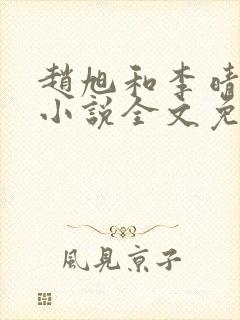 趙旭和李晴
小説全文免
風見京子